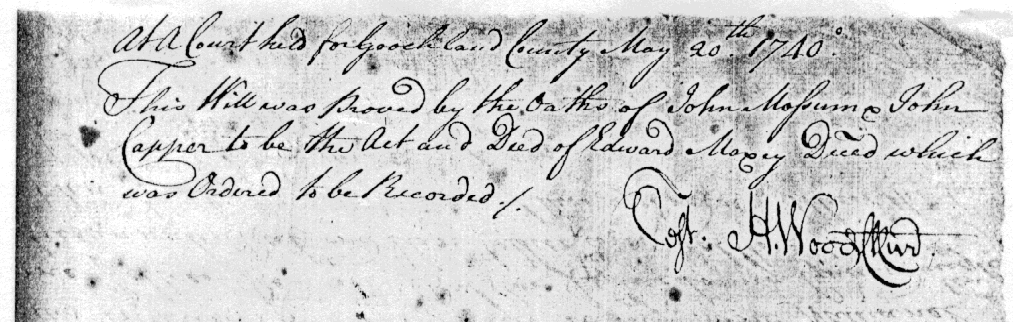 At A Court held for Goochland County May 20th. 1740.
This Will was Proved by the Oaths of John Moſsum & John
Capper to be the Act and Died of Edward Maxey Dĩed which
was Ordered to be Recorded ./.
Test. H. Wood